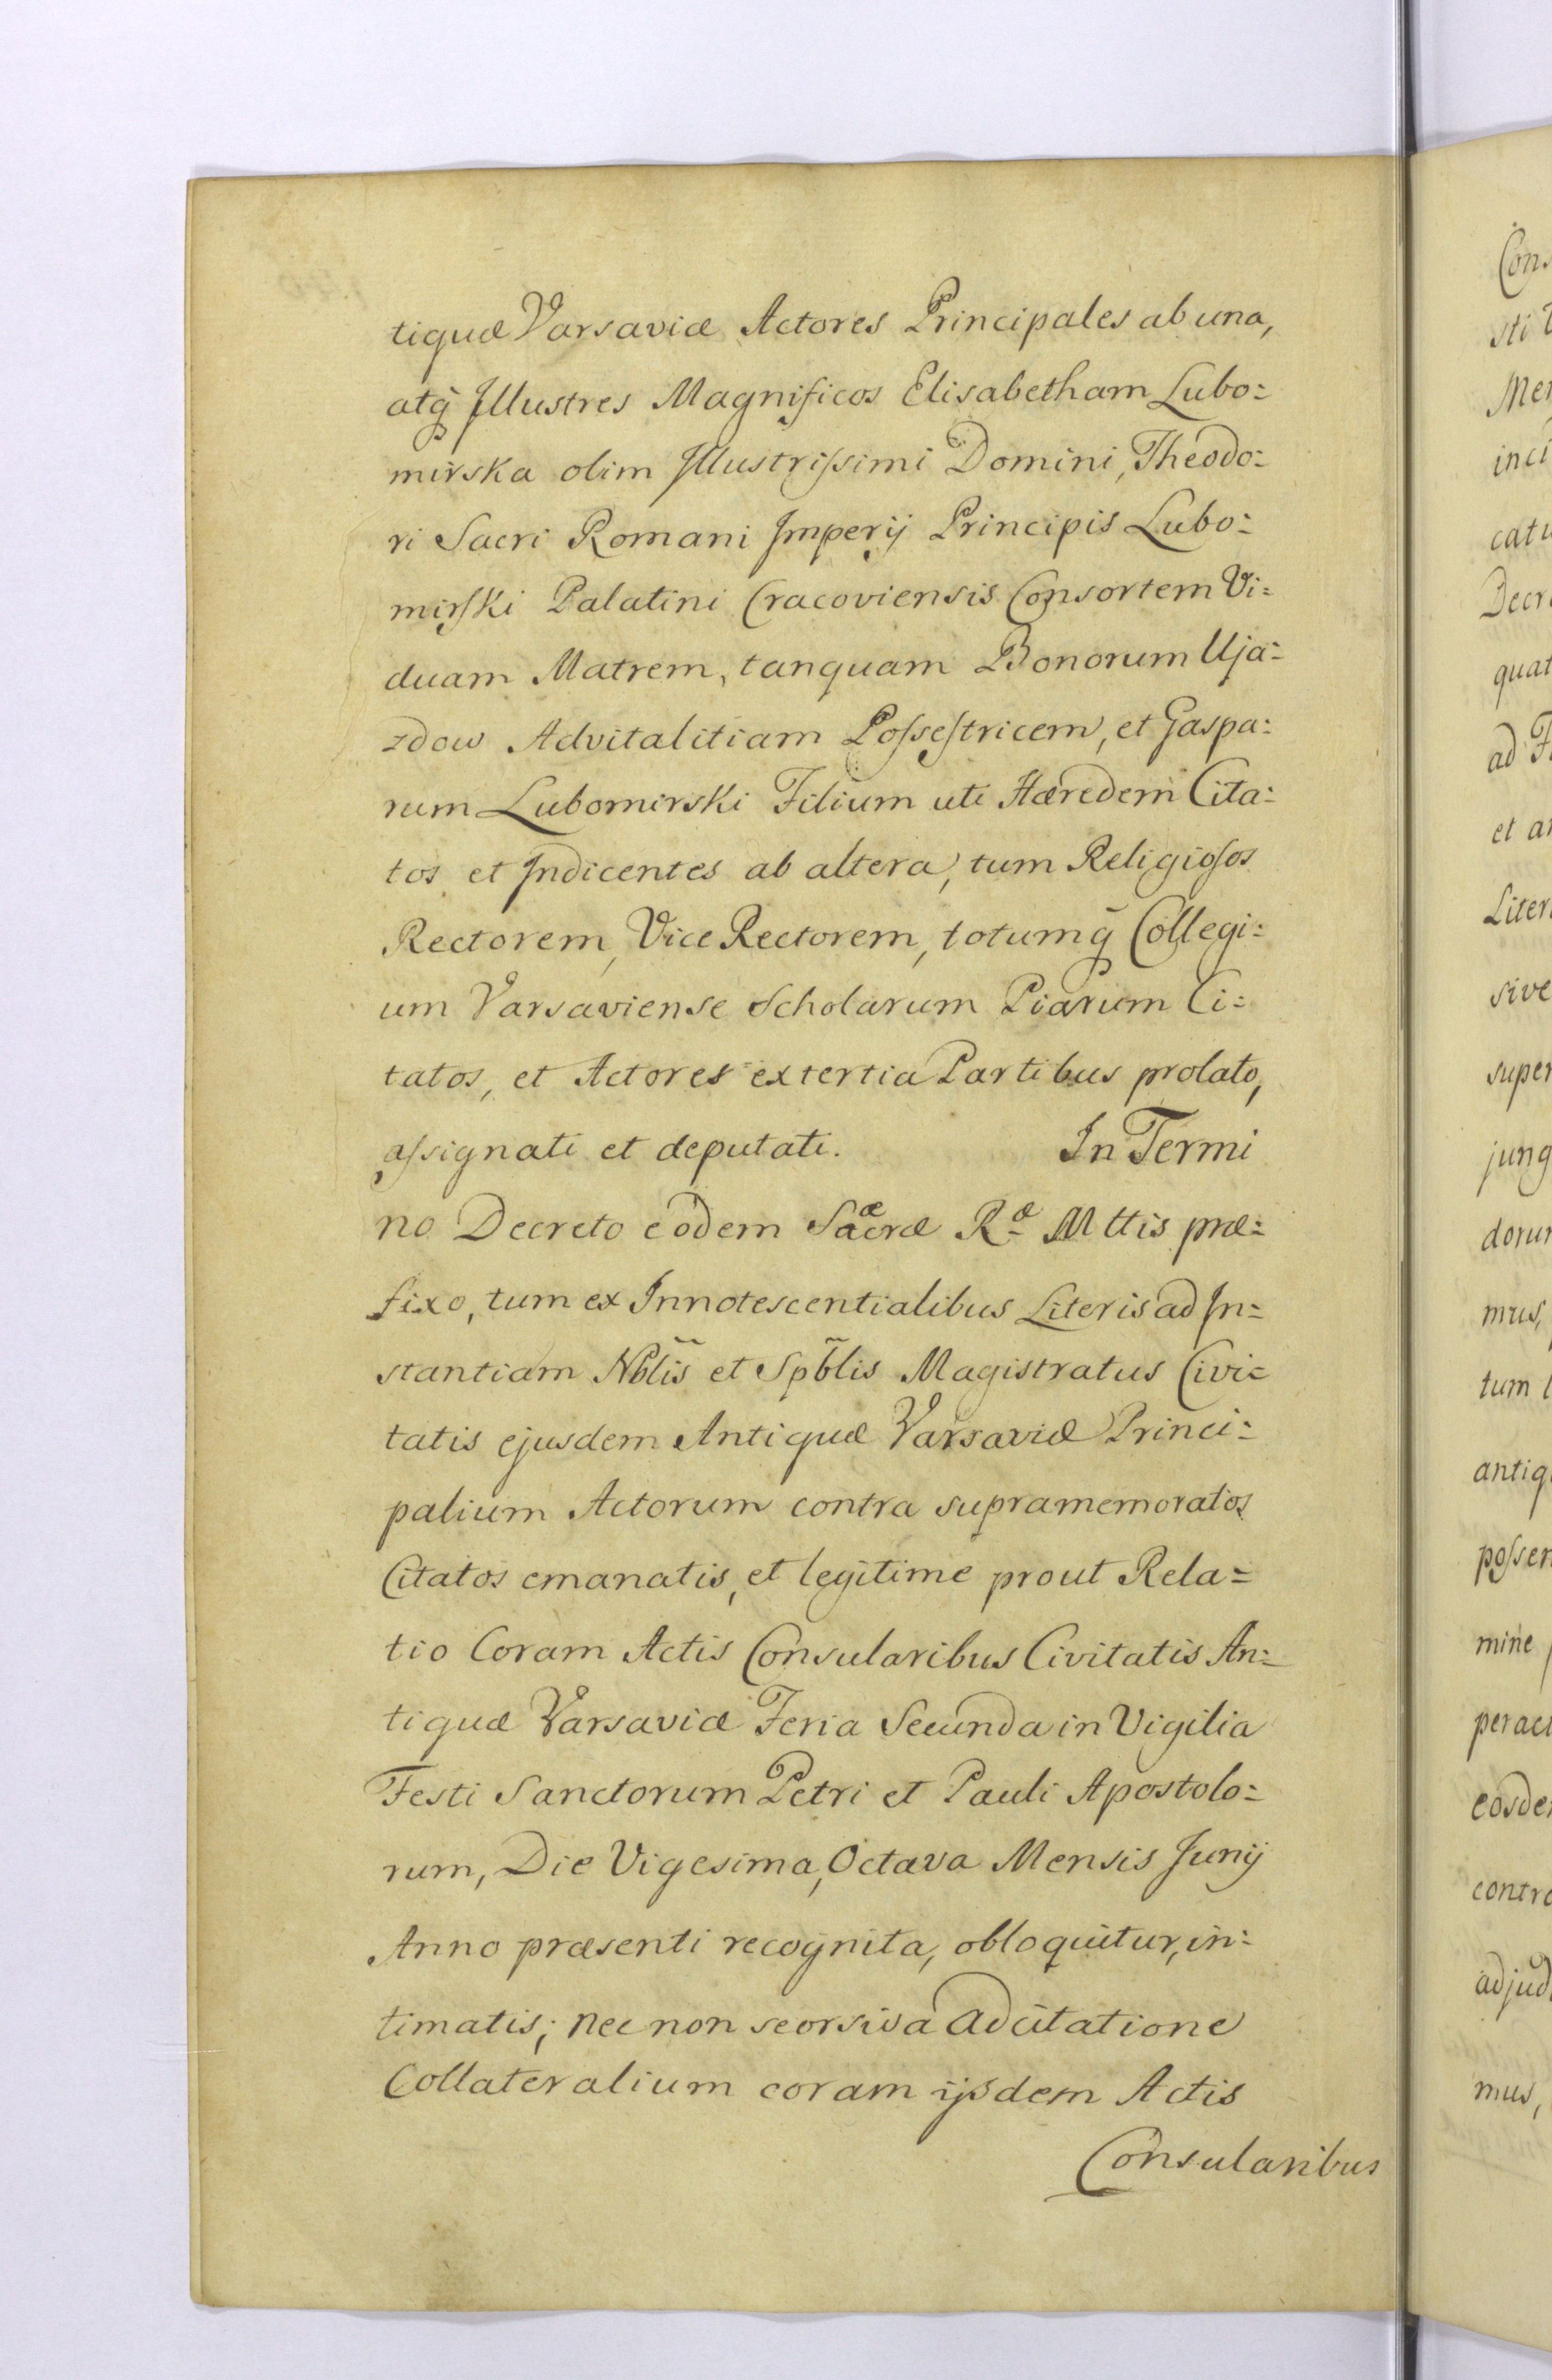 tiquæ Varsaviæ Actores Principales ab una,
atq̃ Illustres Magnificos Elisabetham Lubo=
mirska olim Illustrissimi Domini, Theodo=
ri Sacri Romani Imperij Principis Lubo=
mirski Palatini Cracoviensis Consortem Vi=
duam Matrem, tanquam Bonorum Uja=
zdow Advitalitiam Possestricem, et Gaspa=
rum Lubomirski Filium uti Hæredem Cita=
tos et Indicentes ab altera, tum Religiosos
Rectorem, Vice Rectorem, totumq̃ Collegi=
um Varsaviense Scholarum Piarum Ci=
tatos, et Actores ex tertia Partibus prolato,
assignati et deputati. In Termi
no Decreto eodem Sacræ Ræ Mttis præ=
fixo, tum ex Innotescentialibus Literis ad In=
stantiam Nblis et Spblis Magistratus Civi=
tatis ejusdem Antiquæ Varsaviæ Princi=
palium Actorum contra supramemoratos
Citatos emanatis, et legitime prout Rela=
tio Coram Actis Consularibus Civitatis An=
tiquæ Varsaviæ Feria Secunda in Vigilia
Festi Sanctorum Petri et Pauli Apostolo=
rum, Die Vigesima, Octava Mensis Junij
Anno præsenti recognita, obloquitur, in=
timatis; nec non seorsiva adcitatione
Collateralium coram ijsdem Actis
Consularibus
Cons
sti
Mer
inci
catu
Decr
quat
ad F
et an
Liter
sive
super
jung
dorum
mus,
tum
antiq
possen
mine
perac
eosde
contra
adjud
mus,